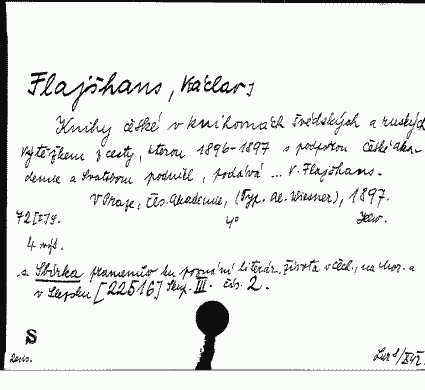 Flajšhans, Václav,
Knihy české v knihovnách švédských a ruských
Výtěžkem z cesty, kterou 1896-1897 s podporou České Aka-
demie a Svatobora podnikl, podává ... V. Flajšhans.
V Praze, Čes. Akademie, (Typ. Al. Wiesner), 1897.
72 I 79. 4°
4 výt.
a Sbírka pramenův ku poznání literár. života v Čech., na Mor. a
v Slezsku [22516] Skup. III. čís. 2.
S
Revs.